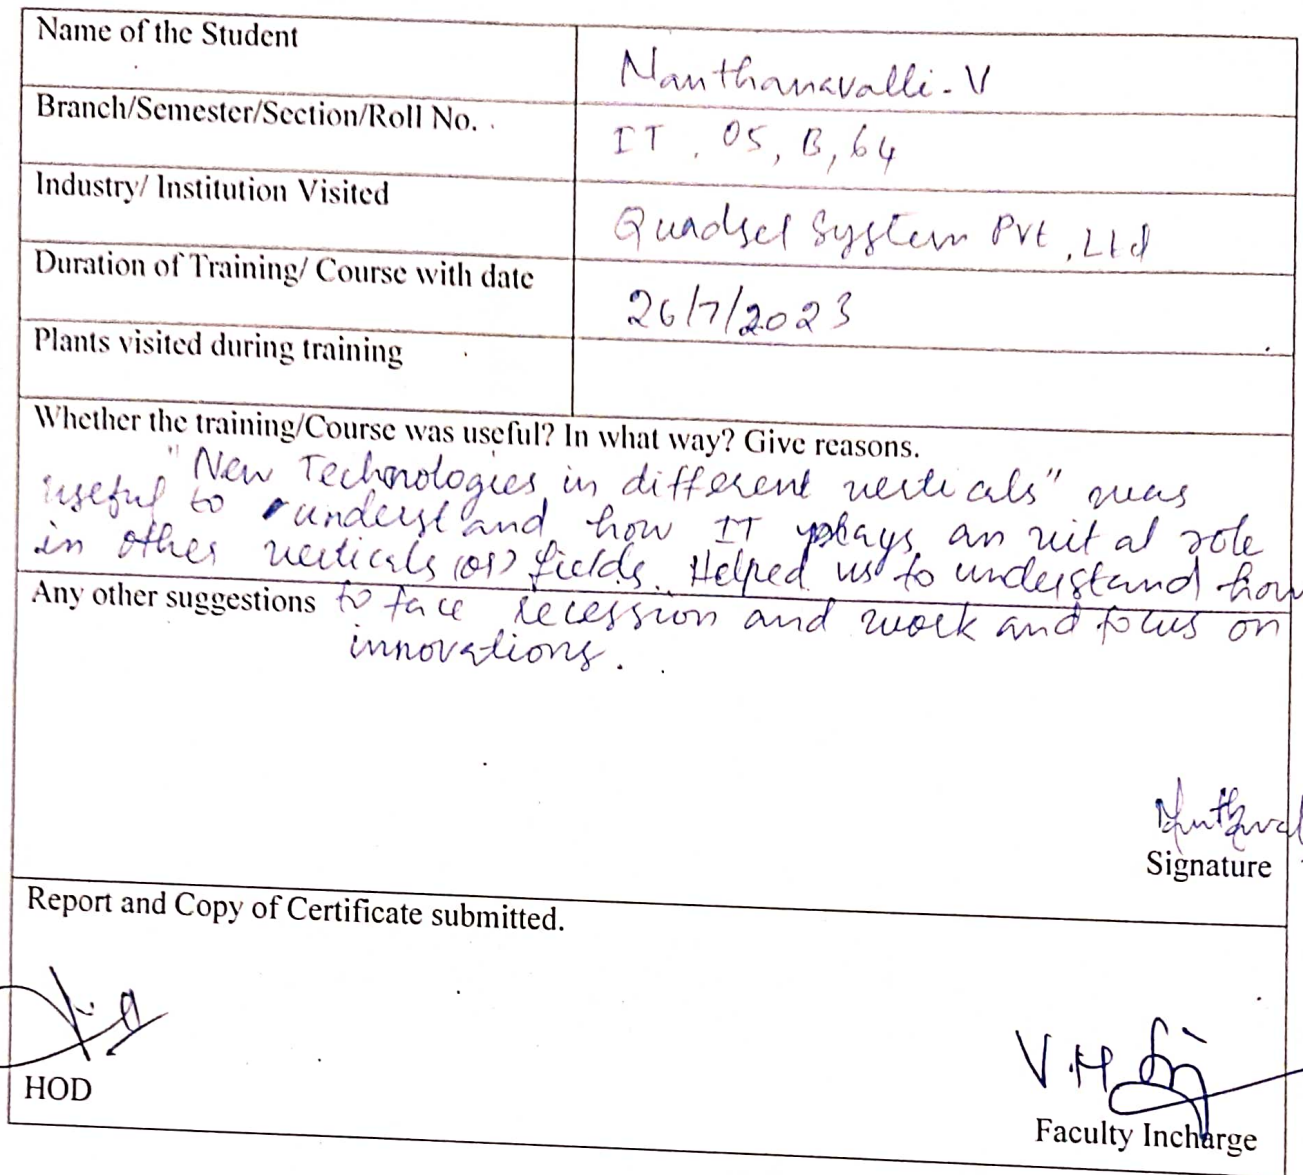 Name of the Student
Nanthanavalli-V
Branch/Semester/Section/Roll No.
IT, 05, B, 64
Industry/ Institution Visited
Quadsel System Pvt, Ltd
Duration of Training/ Course with date
26/7/2023
Plants visited during training
Whether the training/Course was useful? In what way? Give reasons.
"New Technologies in different verticals" was
useful to understand how IT plays an vital role
in other verticals (or) fields. Helped us to understand how
Any other suggestions to face recession and work and focus on
innovations.
Signature
Report and Copy of Certificate submitted.
HOD
V.M
Faculty Incharge